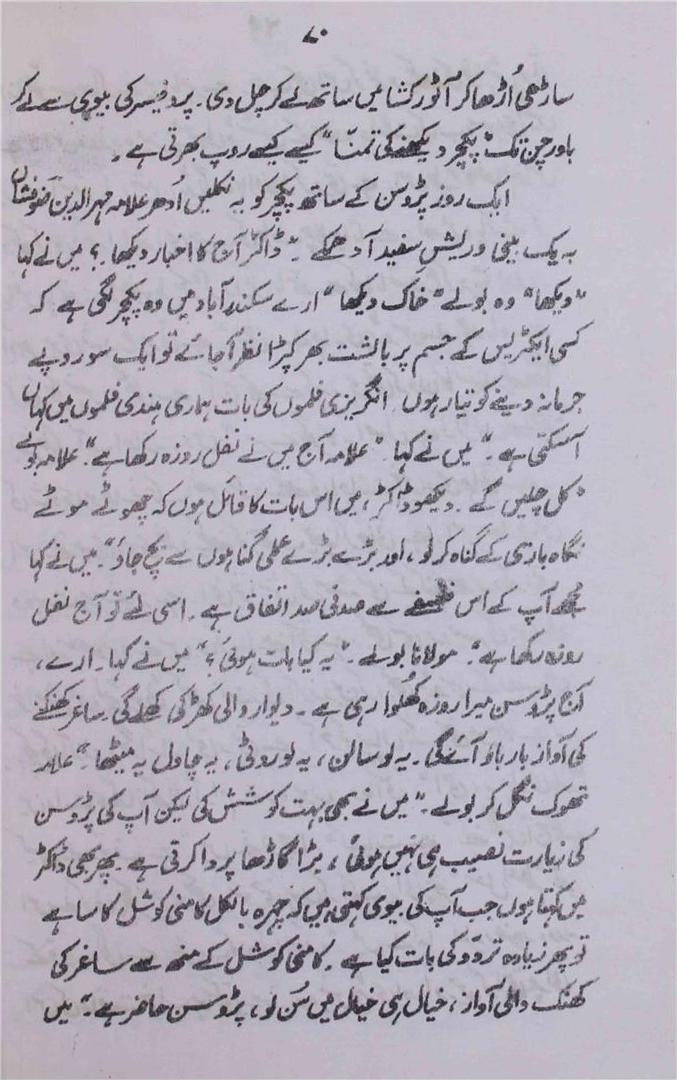 ۷۰
ساڑھی اُڑھا کر آٹو رکشا میں ساتھ لے کر چل دی۔ پروفیسر کی بیوی سے لے کر
باورچن تک "پکچر دیکھنے کی تمنّا" کیسے کیسے روپ بھرتی ہے۔
ایک روز پڑوسن کے ساتھ پکچر کو یہ نکلیں اُدھر علامہ مہرالدین ضوفشاں
بہ یک بینی و ریشِ سفید آ دھمکے۔ "ڈاکٹر آج کا اخبار دیکھا۔؟ میں نے کہا
"دیکھا" وہ بولے "خاک دیکھا" ارے سکندرآباد میں وہ پکچر لگی ہے کہ
کسی ایکٹریس کے جسم پر بالشت بھر کپڑا نظر آ جائے تو ایک سو روپے
جرمانہ دینے کو تیار ہوں۔ انگریزی فلموں کی بات ہماری ہندی فلموں میں کہاں
آ سکتی ہے۔" میں نے کہا۔ "علامہ آج میں نے نفل روزہ رکھا ہے۔" علامہ بولے
"کل چلیں گے۔ دیکھو ڈاکٹر، میں اس بات کا قائل ہوں کہ چھوٹے موٹے
نگاہ بازی کے گناہ کر لو، اور بڑے بڑے عملی گناہوں سے بچ جاؤ"۔ میں نے کہا
مجھے آپ کے اس فلسفے سے صد فی صد اتفاق ہے۔ اسی لئے تو آج نفل
روزہ رکھا ہے"۔ مولانا بولے۔ "یہ کیا بات ہوئی؟" میں نے کہا۔ ارے،
آج پڑوسن میرا روزہ کھُلوا رہی ہے۔ دیوار والی کھڑکی کھلے گی۔ ساغر کھنکنے
کی آواز بار بار آئے گی۔ یہ لو سالن، یہ لو روٹی، یہ چاول یہ میٹھا۔" علامہ
تھوک نگل کر بولے۔ "میں نے بھی بہت کوشش کی لیکن آپ کی پڑوسن
کی زیارت نصیب ہی نہیں ہوئی، بڑا گاڑھا پردا کرتی ہے۔ پھر بھی ڈاکٹر
میں کہتا ہوں جب آپ کی بیوی کہتی ہیں کہ چہرہ بالکل کامنی کوشل کا سا ہے
تو پھر زیادہ تردّد کی بات کیا ہے۔ کامنی کوشل کے منھ سے ساغر کی
کھنک والی آواز، خیال ہی خیال میں سُن لو، پڑوسن حاضر ہے۔" میں